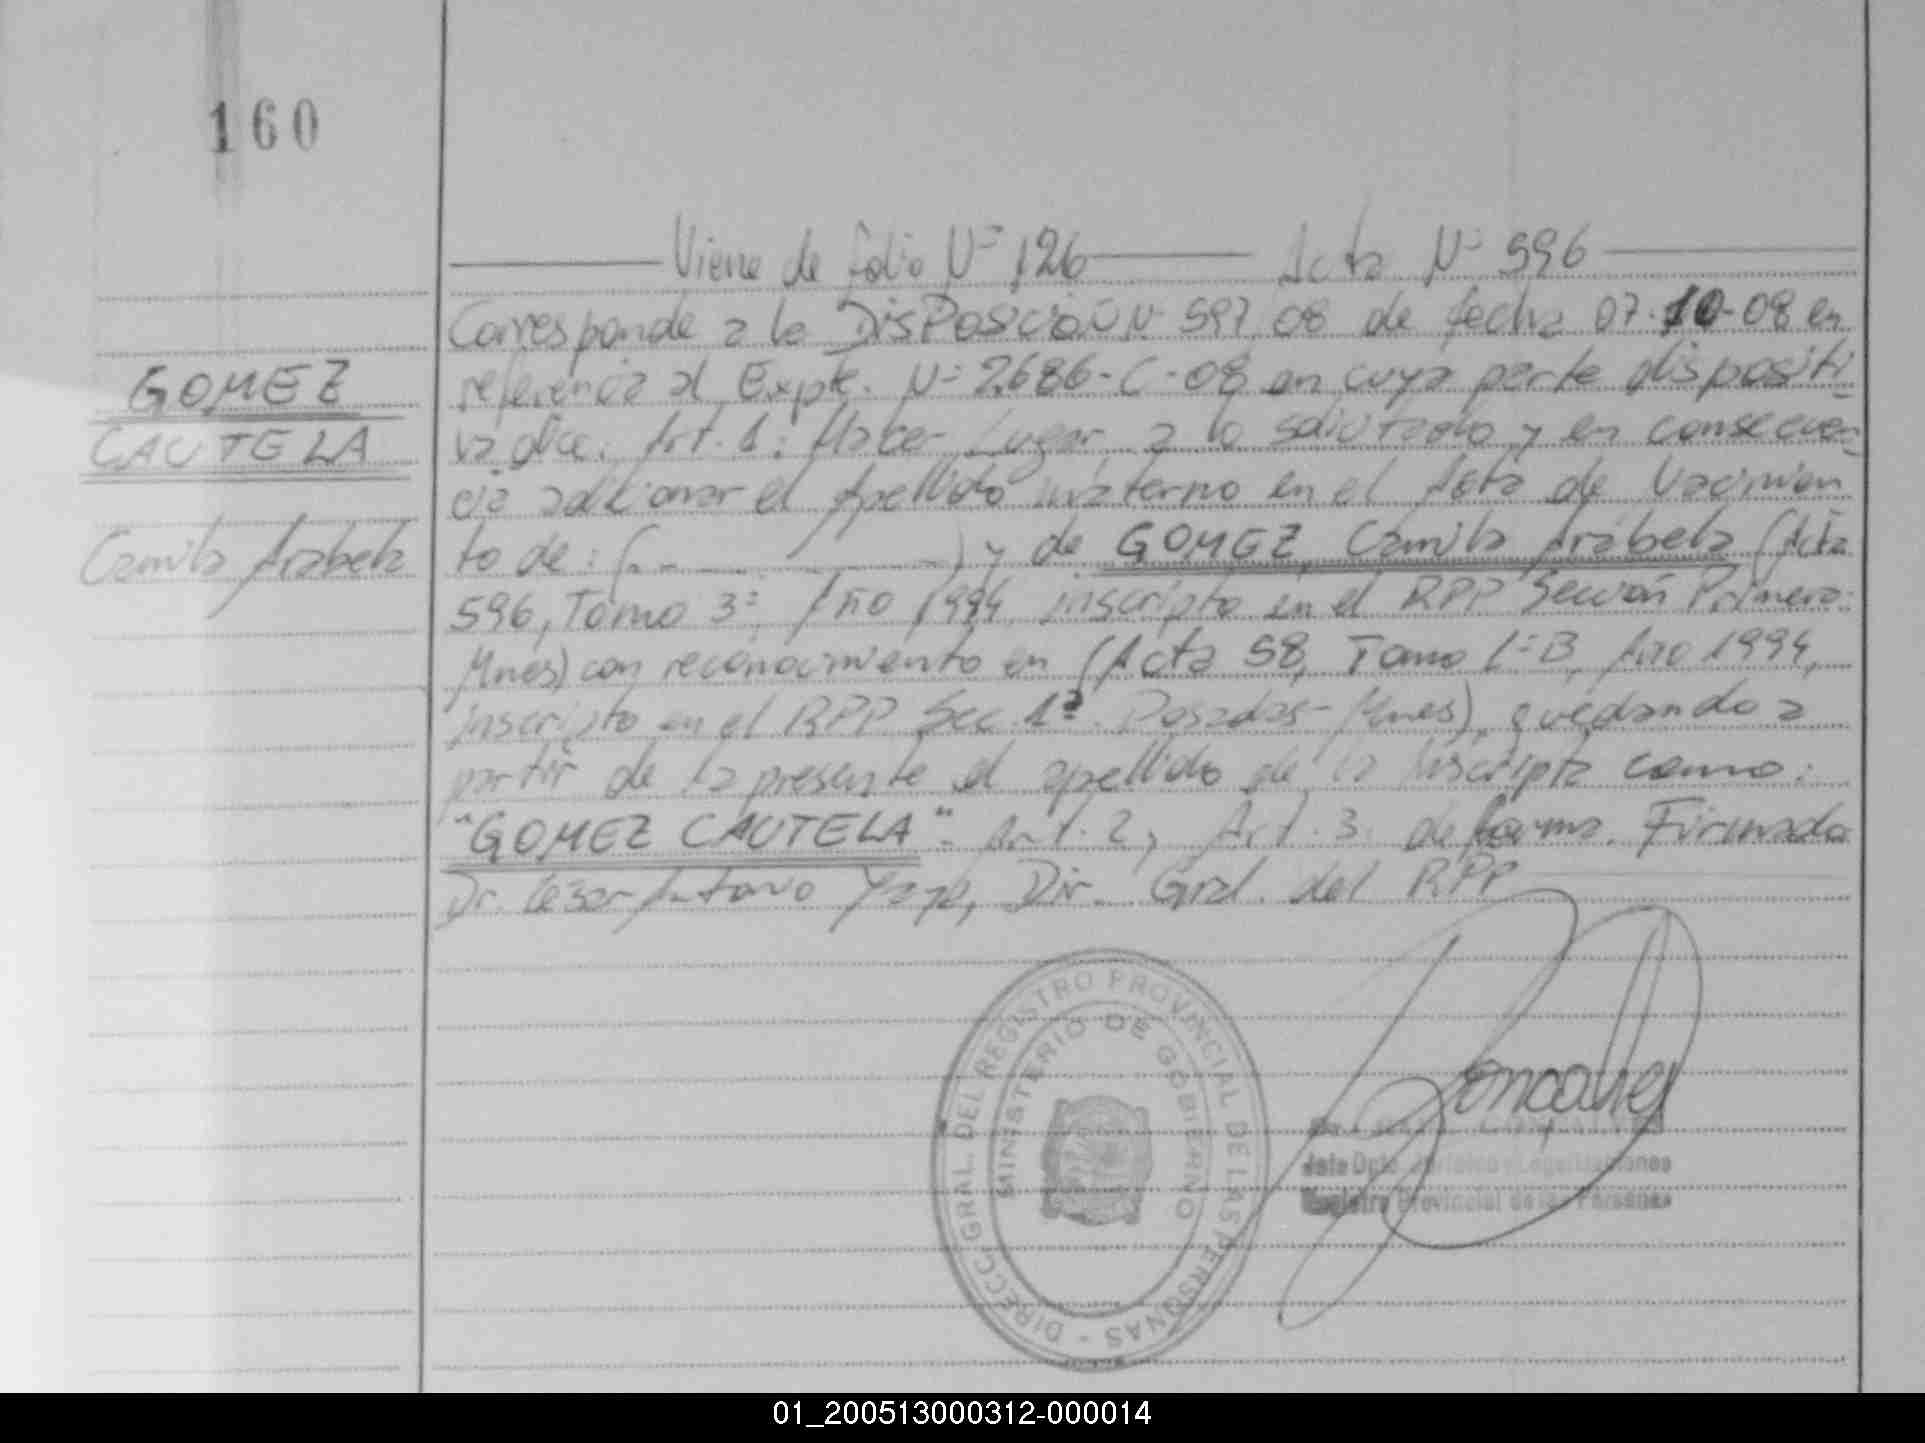 160
Viene de folio Nº 126 Acta Nº 596
Corresponde a la DISPOSICIÓN Nº 597/08 de fecha 07-10-08 en
GOMEZ
referencia al Expte. Nº 2686-C-08 en cuya parte dispositi
CAUTELA
va dice: Art. 1: Hacer Lugar a lo solicitado y en consecuen
cia adicionar el Apellido materno en el Acta de Nacimien
Camila Arabela
to de: (- - - - - - - ) y de GOMEZ, Camila Arabela (Acta
596, Tomo 3º, Año 1994, inscripta en el RPP Sección Primera
Mnes) con reconocimiento en (Acta 58, Tomo 1º B, Año 1994,
inscripto en el RPP Sec. 1ª. Posadas-Mnes), quedando a
partir de la presente el apellido de la inscripta como:
"GOMEZ CAUTELA". Art. 2, Art. 3. de forma. Firmado
Dr. César Antonio, Dir. Gral. del RPP
DIRECC. GRAL. DEL REGISTRO PROVINCIAL DE LAS PERSONAS -
MINISTERIO DE GOBIERNO
Jefe Dpto. Jurídico y Legalizaciones
Registro Provincial de las Personas
01_200513000312-000014